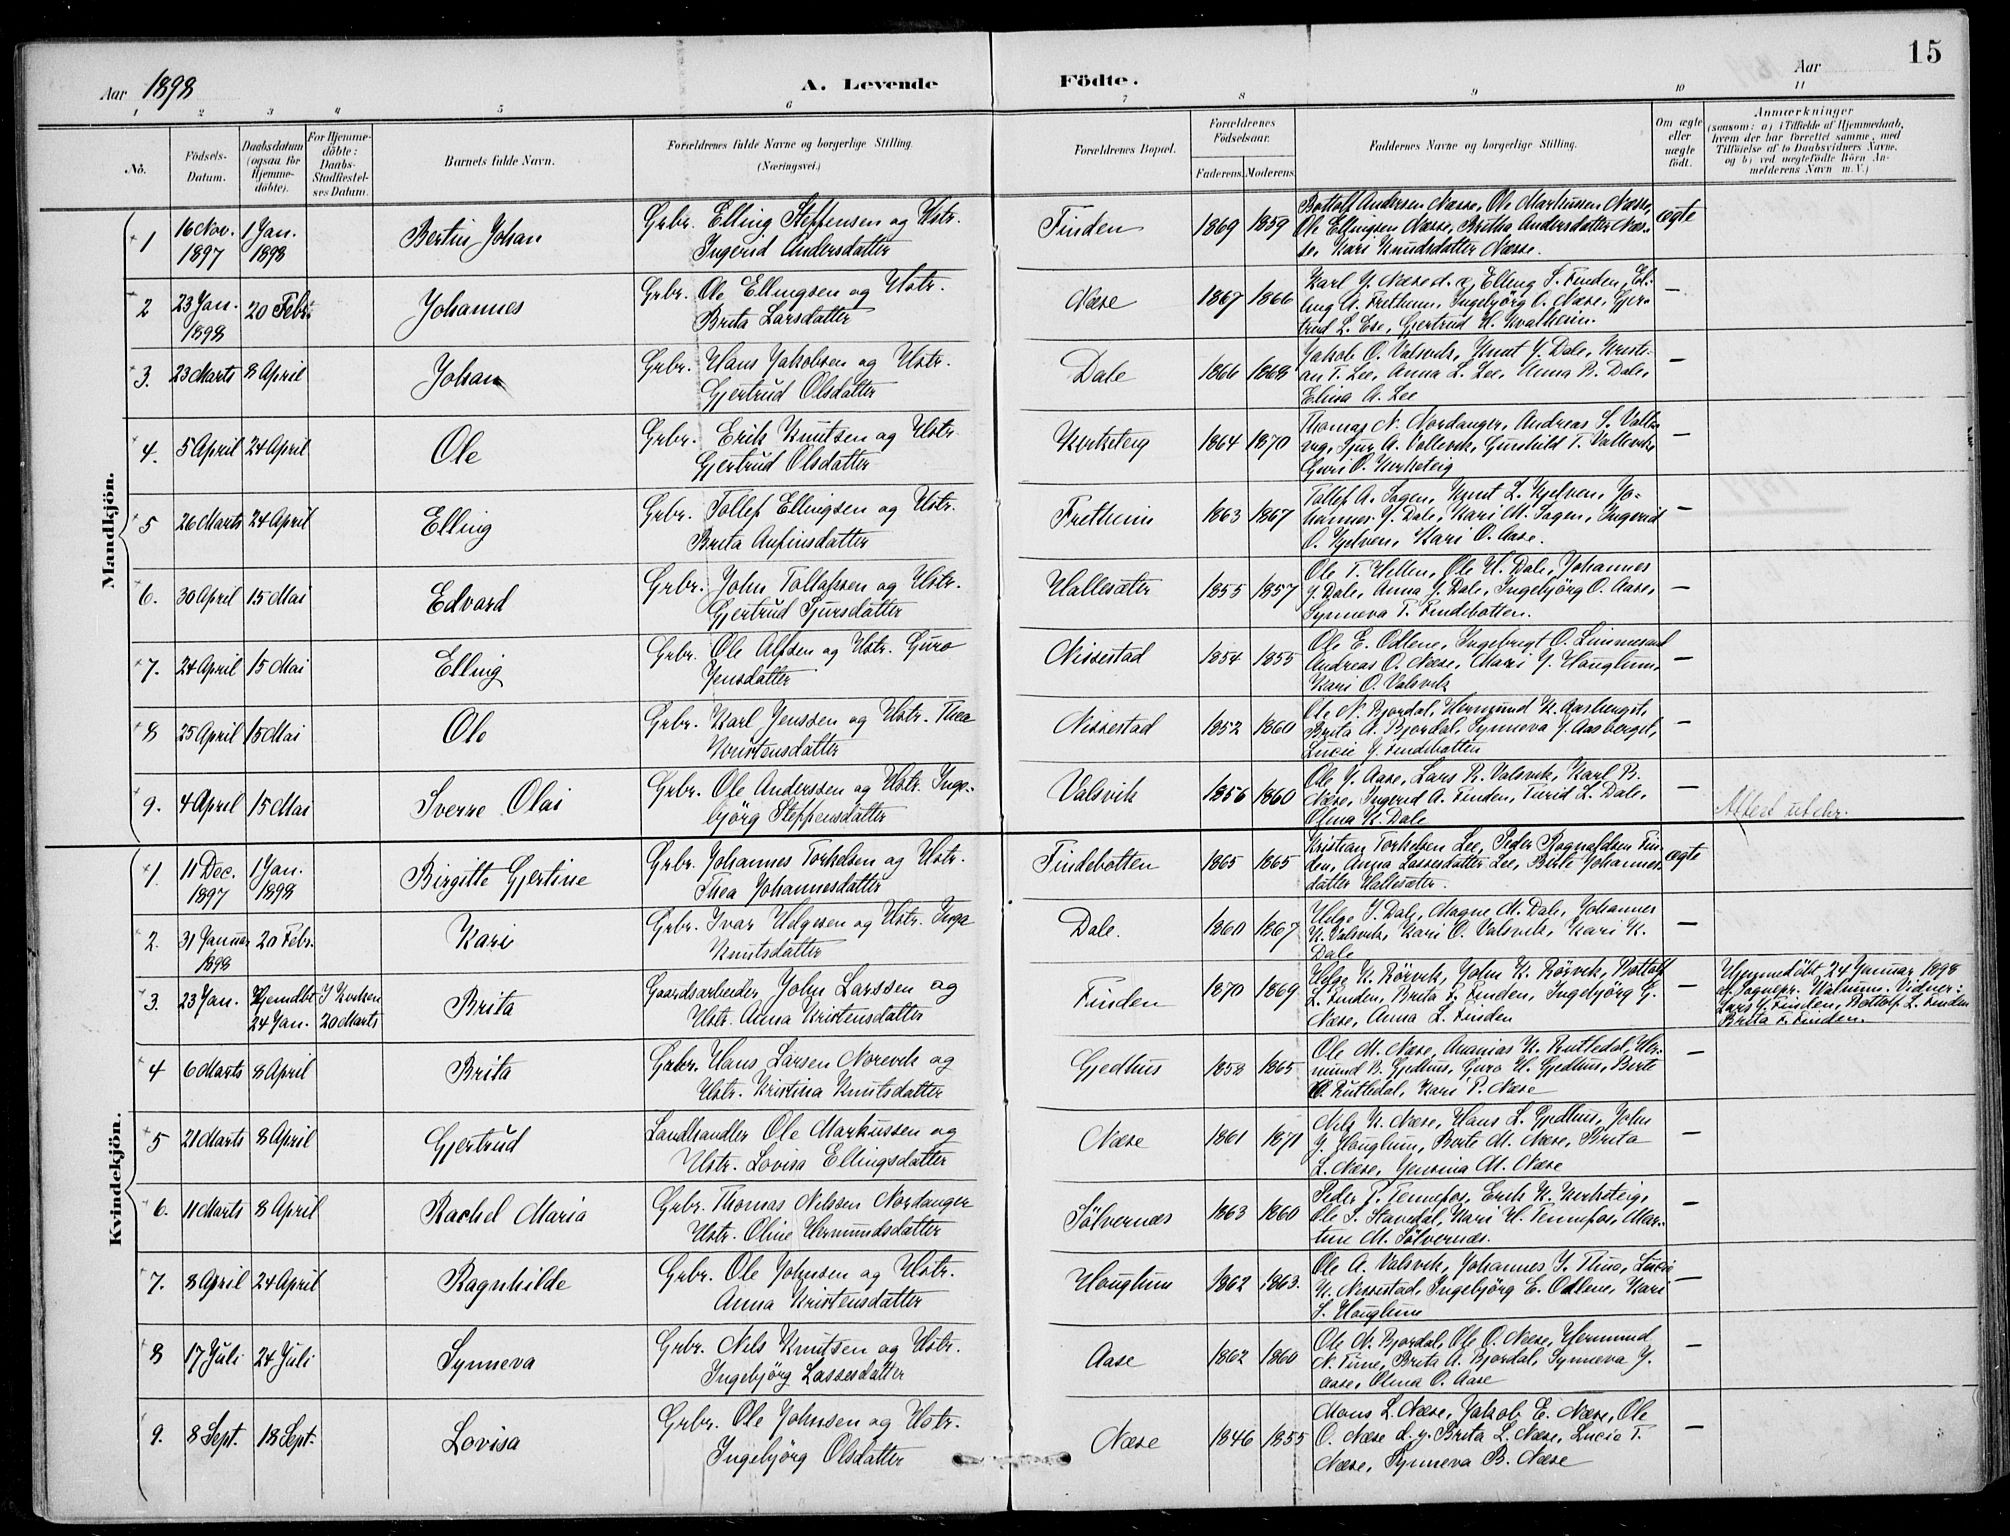 15
Aar 1898
A. Levende Födte.
Aar
1 2 3 4 5 6 7 8 9 10 11
No.
Födsels-Datum.
Daabsdatum (ogsaa for Hjemmedöbte).
For Hjemmedöbte: Daabs-Stadfæstelses Datum.
Barnets fulde Navn.
Forældrenes fulde Navne og borgerlige Stilling. (Næringsvei.)
Forældrenes Bopæl.
Forældrenes Födselsaar.
Faderens. Moderens.
Faddernes Navne og borgerlige Stilling.
Om ægte eller uægte födt.
Anmærkninger
(saasom: a) i Tilfælde af Hjemmedaab, hvem der har forrettet samme, med Tilföielse af to Daabsvidners Navne, og b) ved uægtefödte Börn Anmelderens Navn m. V.)
Mandkjön.
1 16 Nov. 1897 1 Jan. 1898 Bertus Johan Grbr. Elling Steffensen og Hstr. Ingerid Andersdatter Finden 1869 1859 Bottolf Andersen Næsse, Ole Markussen Næsse, Ole Ellingsen Næsse, Britha Andersdatter Næsse, Kari Knudsdatter Næsse. ægte
2 23 Jan. 1898 20 Febr. Johannes Grbr. Ole Ellingsen og Hstr. Brita Larsdatter Næse 1867 1866 Karl J. Næse d. æ, Elling S. Finden, Elling A. Fretheim, Ingebjörg O. Næse, Gjertrud L. Ese, Gjertrud H. Kvalheim. —
3. 23 Marts 8 April Johan Grbr. Hans Jakobsen og Hstr. Gjertrud Olsdatter Dale 1866 1868 Jakob O. Valsvik, Knut J. Dale, Kristian T. Lee, Anna L. Lee, Anna B. Dale, Elisa A. Lee —
4. 5 April 24 April Ole Grbr. Erik Knutsen og Hstr. Gjertrud Olsdatter Kirketeig 1864 1870 Thomas N. Nordanger, Andreas S. Vallevig, Sjur A. Vallevik, Gunhild T. Vallevik, Guri O. Kirketeig —
5 26 Marts 24 April Elling Grbr. Tollef Ellingsen og Hstr. Brita Anfinsdatter Fretheim 1863 1867 Tollef A. Sagen, Knut L. Kjelven, Johannes J. Dale, Kari M. Sagen, Ingerid O. Kjelven, Kari O. Aase. —
6. 30 April 15 Mai Edvard Grbr. John Tollafssen og Hstr. Gjertrud Sjursdatter Hallesæter 1855 1857 Ole T. Hellen, Ole H. Dale, Johannes J. Dale, Anna J. Dale, Ingebjörg O. Aase, Synneva T. Findebotten. —
7. 24 April 15 Mai Elling Grbr. Ole Alfsen og Hstr. Guro Jensdatter Nissestad 1854 1855 Ole E. Odlene, Ingebrigt O. Limmesand Andreas O. Næse, Mari J. Hauglum, Kari O. Valsvik —
8 25 April 15 Mai Ole Grbr. Karl Jenssen og Hstr. Thea Kristensdatter Nissestad 1852 1860 Ole N. Bjordal, Hermund K. Aasberget, Brita A. Bjordal, Synneva J. Aasberget, Lucie J. Findebotten —
9. 4 April 15 Mai Sverre Olai Grbr. Ole Anderssen og Hstr. Ingebjörg Steffensdatter Valsvik 1856 1860 Ole J. Aase, Lars R. Valsvik, Karl B. Næse, Ingerid A. Finden, Turid L. Dale, Olina K. Dale — Attest utskr.
Kvindekjön.
1. 11 Dec. 1897 1 Jan. 1898 Birgitte Gjertine Grbr. Johannes Torkelsen og Hstr. Thea Johannesdatter Findebotten 1865 1865 Kristian Torkelsen Lee, Peder Rognaldsen Finden, Anna Lassesdatter Lee, Birte Johannesdatter Hallesæter. ægte
2. 31 Januar 1898 20 Febr. Kari Grbr. Ivar Helgesen og Hstr. Inga Knutsdatter Dale. 1860 1867 Helge I. Dale, Magne M. Dale, Johannes K. Valsvik, Kari O. Valsvik, Kari K. Dale —
3. 23 Jan. Hjemdbt 24 Jan. I Kirken 20 Marts Brita Gaardsarbeider John Larssen og Hstr. Anna Kristensdatter Finden 1870 1869 Helge K. Rörvik, John K. Rörvik, Bottolf L. Finden, Brita F. Finden, Ingebjörg G. Næse, Anna L. Finden — Hjemmedöbt 24 Januar 1898 af Sognepr. Kalnum. Vidner: Lars J. Finden, Bottolf L. Finden Brita F. Finden.
4 6 Marts 8 April Brita Grbr. Hans Larsen Norevik og Hstr. Kristina Knutsdatter Gjedhus 1858 1865 Ole M. Næse, Ananias K. Rutledal, Hermund B. Gjedhus, Guro H. Gjedhus, Berte O. Rutledal, Kari P. Næse —
5 21 Marts 8 April Gjertrud Landhandler Ole Markussen og Hstr. Lovisa Ellingsdatter Næse 1861 1871 Nils K. Næse, Hans L. Gjedhus, John J. Hauglum, Berte M. Næse, Brita L. Næse, Jensina M. Næse —
6. 11 Marts 8 April Rachel Maria Grbr. Thomas Nilssen Nordanger Hstr. Oline Hermundsdatter Sölvernæs 1863 1860 Peder T. Tennefos, Erik K. Kirketeig, Ole S. Stavedal, Kari H. Tennefos, Martine M. Sölvernæs. —
7. 8 April 24 April Ragnhilde Grbr. Ole Johnsen og Hstr. Anna Kristensdatter Hauglum 1862 1863. Ole A. Valsvik, Johannes J. Thue, Lucie K. Nissestad, Ingebjörg E. Odlene, Kari S. Hauglum —
8 17 Juli 24 Juli Synneva Grbr. Nils Knutsen og Hstr. Ingebjörg Lassesdatter Aase 1862 1860 Ole N. Bjordal, Ole O. Næse, Hermund N. Fine, Brita A. Bjordal, Synneva J. Aase, Olina O. Aase —
9. 8 Sept. 18 Sept. Lovisa Grbr. Ole Johnsen og Hstr. Ingebjörg Olsdatter Næse 1846 1855 Mons L. Næse, Jakob E. Næse, Ole O. Næse d. y. Brita L. Næse, Lucie T. Næse, Synneva B. Næse —